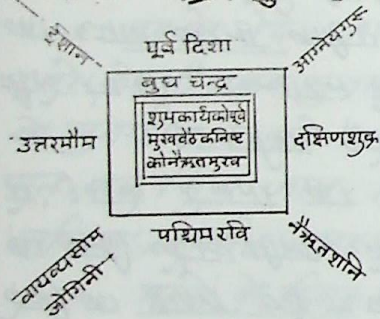 ईशान
पूर्व दिशा
आग्नेयगुरु
बुध चन्द्र
शुभकार्यकोपूर्व
मुखबैठकनिष्ट
कोनैऋतमुरव
उत्तरमौम
दक्षिणशुक्र
पश्चिम रवि
वायव्यसोम
जोगिनी
नैऋतशनि